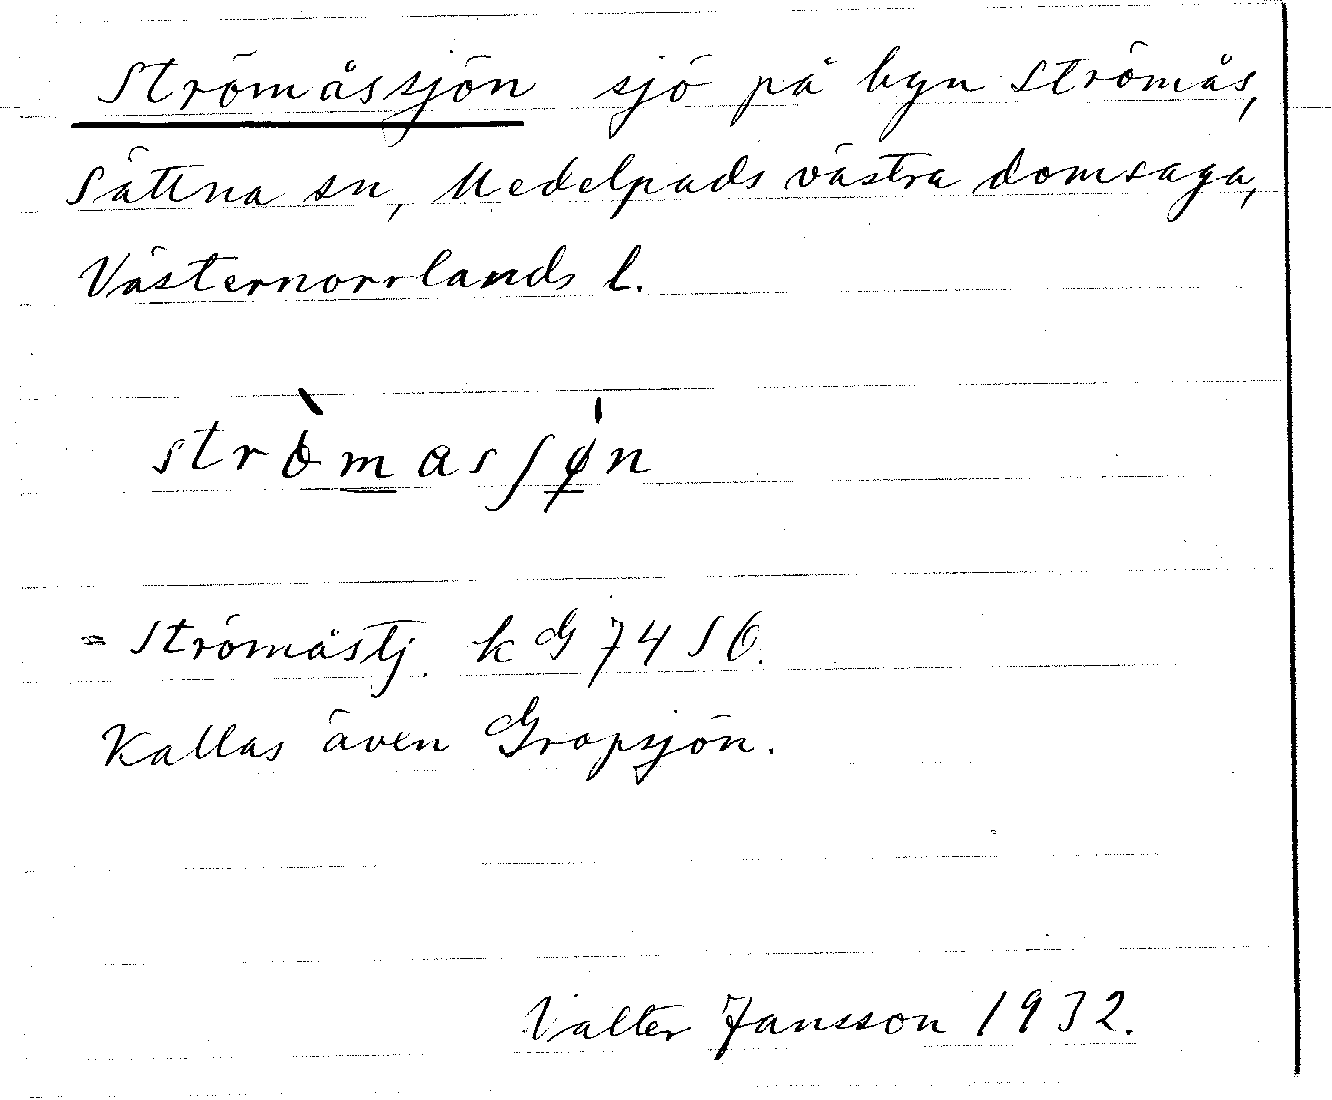 Strömåssjön sjö på byn Strömås,
Sättna sn, Medelpads västra domsaga,
Västernorrlands l.
stròmasʃø̍n
= Strömåstj. kG 74 S6.
Kallas även Gropsjön.
Valter Jansson 1932.